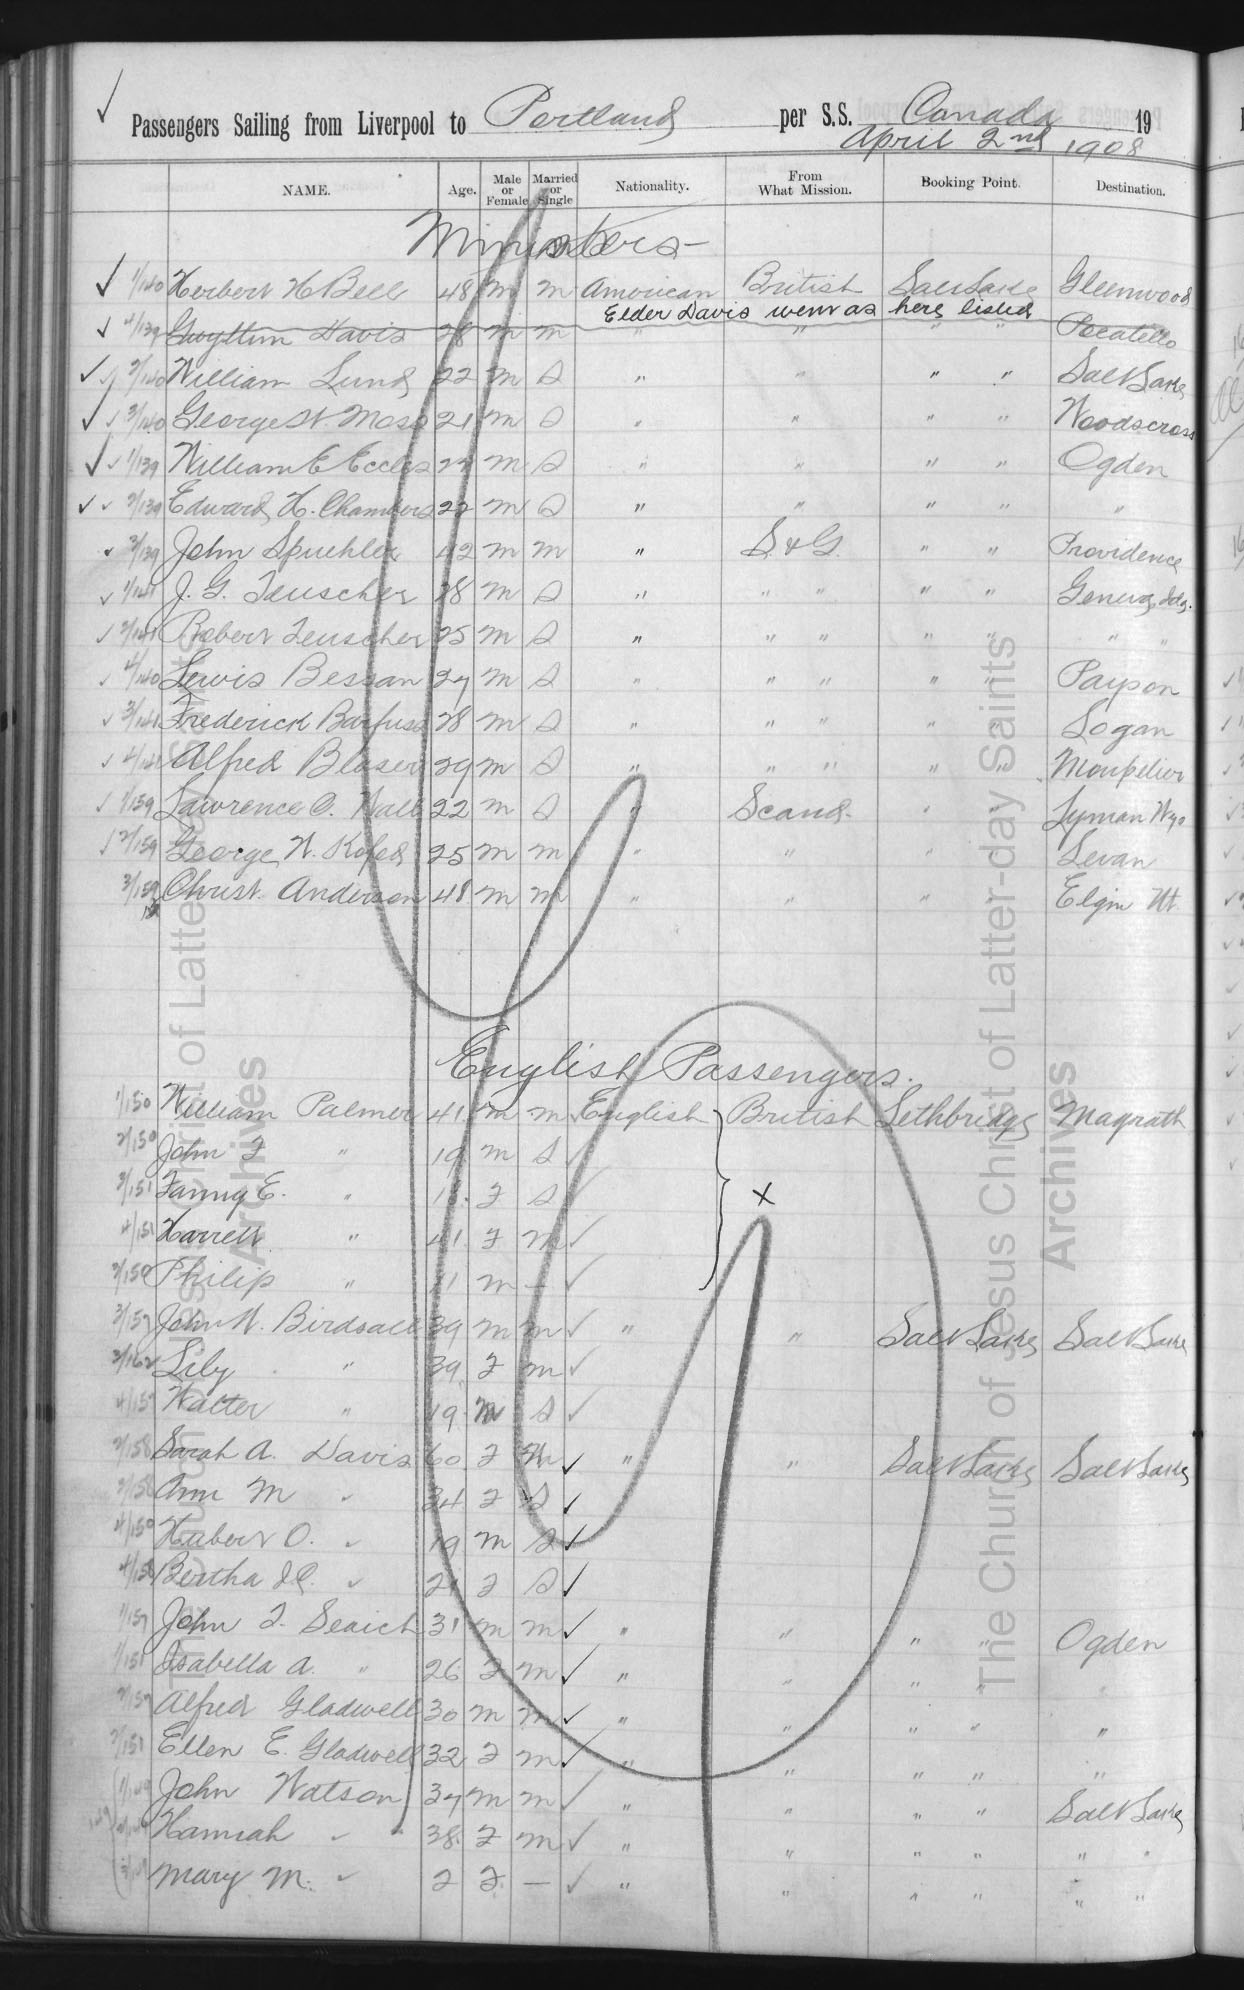 Passengers Sailing from Liverpool to Portland per S.S. Canada 19
April 2nd 1908
NAME. Age. Male or Female Married or Single Nationality. From What Mission. Booking Point. Destination.
Ministers
1/140 Herbert H Bell 48 m m American British Salt Lake Glenwood
Elder Davis went as here listed
4/139 Gwyllim Davis 28 m m " " " " Pocatello
2/140 William Lund 22 m S " " " " Salt Lake
3/140 George W. Moss 21 m S " " " " Woodscross
1/139 William E Eccles m S " " " " Ogden
2/139 Edward H. Chambers 22 m S " " " " "
3/139 John Spuehler 42 m m " S. & G. " " Providence
1/141 J. G. Teuscher 28 m S " " " " " Geneva, Ida.
2/141 Robert Teuscher 25 m S " " " " " " "
4/140 Lewis Bessan 27 m S " " " " " Payson
3/141 Frederick Barfuss 28 m S " " " " " Logan
4/141 Alfred Blaser 29 m S " " " " " Montpelier
1/159 Lawrence O. Hall 22 m S " Scand. " " Lyman Wyo
2/159 George W. Kofed 25 m m " " " " Levan
3/159 Christ. Anderson 48 m m " " " " Elgin Ut.
English Passengers.
1/150 William Palmer 41 m m English British Lethbridge Magrath
2/150 John F " 19 m S
3/151 Fanny E. " F S
4/151 Harrett " 41 F m x
2/150 Philip " 11 m —
3/157 John W. Birdsall 39 m m " " Salt Lake Salt Lake
2/162 Lily " 39 F m
4/157 Walter " 19 m S
2/158 Sarah A. Davis 60 F " " Salt Lake Salt Lake
2/158 Ann M " 34 F S
4/150 Hubert O. " 19 m S
4/158 Bertha " 21 F S
1/157 John F. Seaich 31 m m " " " " Ogden
1/151 Isabella A. " 26 F m " " " " "
2/157 Alfred Gladwell 30 m m " " " " "
2/151 Ellen E. Gladwell 32 F m " " " " "
1/149 John Watson 37 m m " " " " Salt Lake
Hannah " 38 F m " " " " " "
Mary M. " 2 F — " " " " " "
The Church of Jesus Christ of Latter-day Saints
Archives
The Church of Jesus Christ of Latter-day Saints
Archives